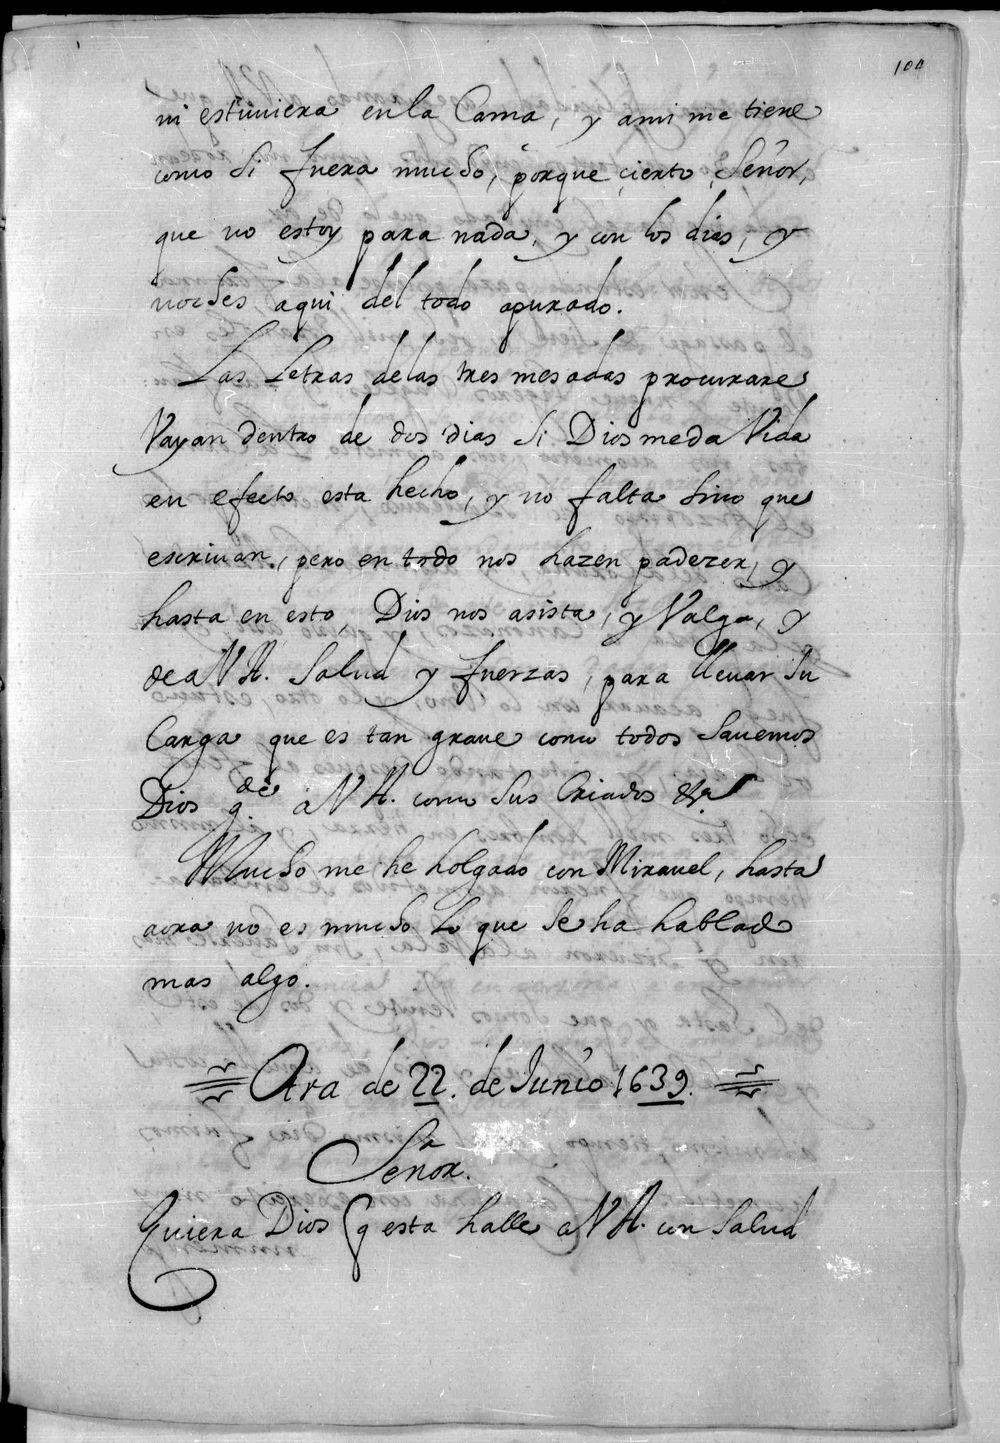 104
ni estuuiera en la Cama, y ami me tiene
como si fuera mucho, porque cierto Señor,
que no estoy para nada, y con los dias, y
noches aqui del todo apurado.
Las Letras delas tres mesadas procurare
Vayan dentro de dos dias si Dios me da Vida
en efecto esta hecho, y no falta sino que
escriuan, pero en todo nos hazen padezer, y
hasta en esto, Dios nos asista, y Valga, y
de a V A. salud y fuerzas, para lleuar su
Carga que es tan graue como todos sauemos
Dios g.de a V A. como sus Criados &a
Mucho me he holgado con Mirauel, hasta
aora no es mucho lo que se ha hablado
mas algo.
Otra de 22. de Junio 1639.
Señor.
Quiera Dios q esta halle a V A. con salud